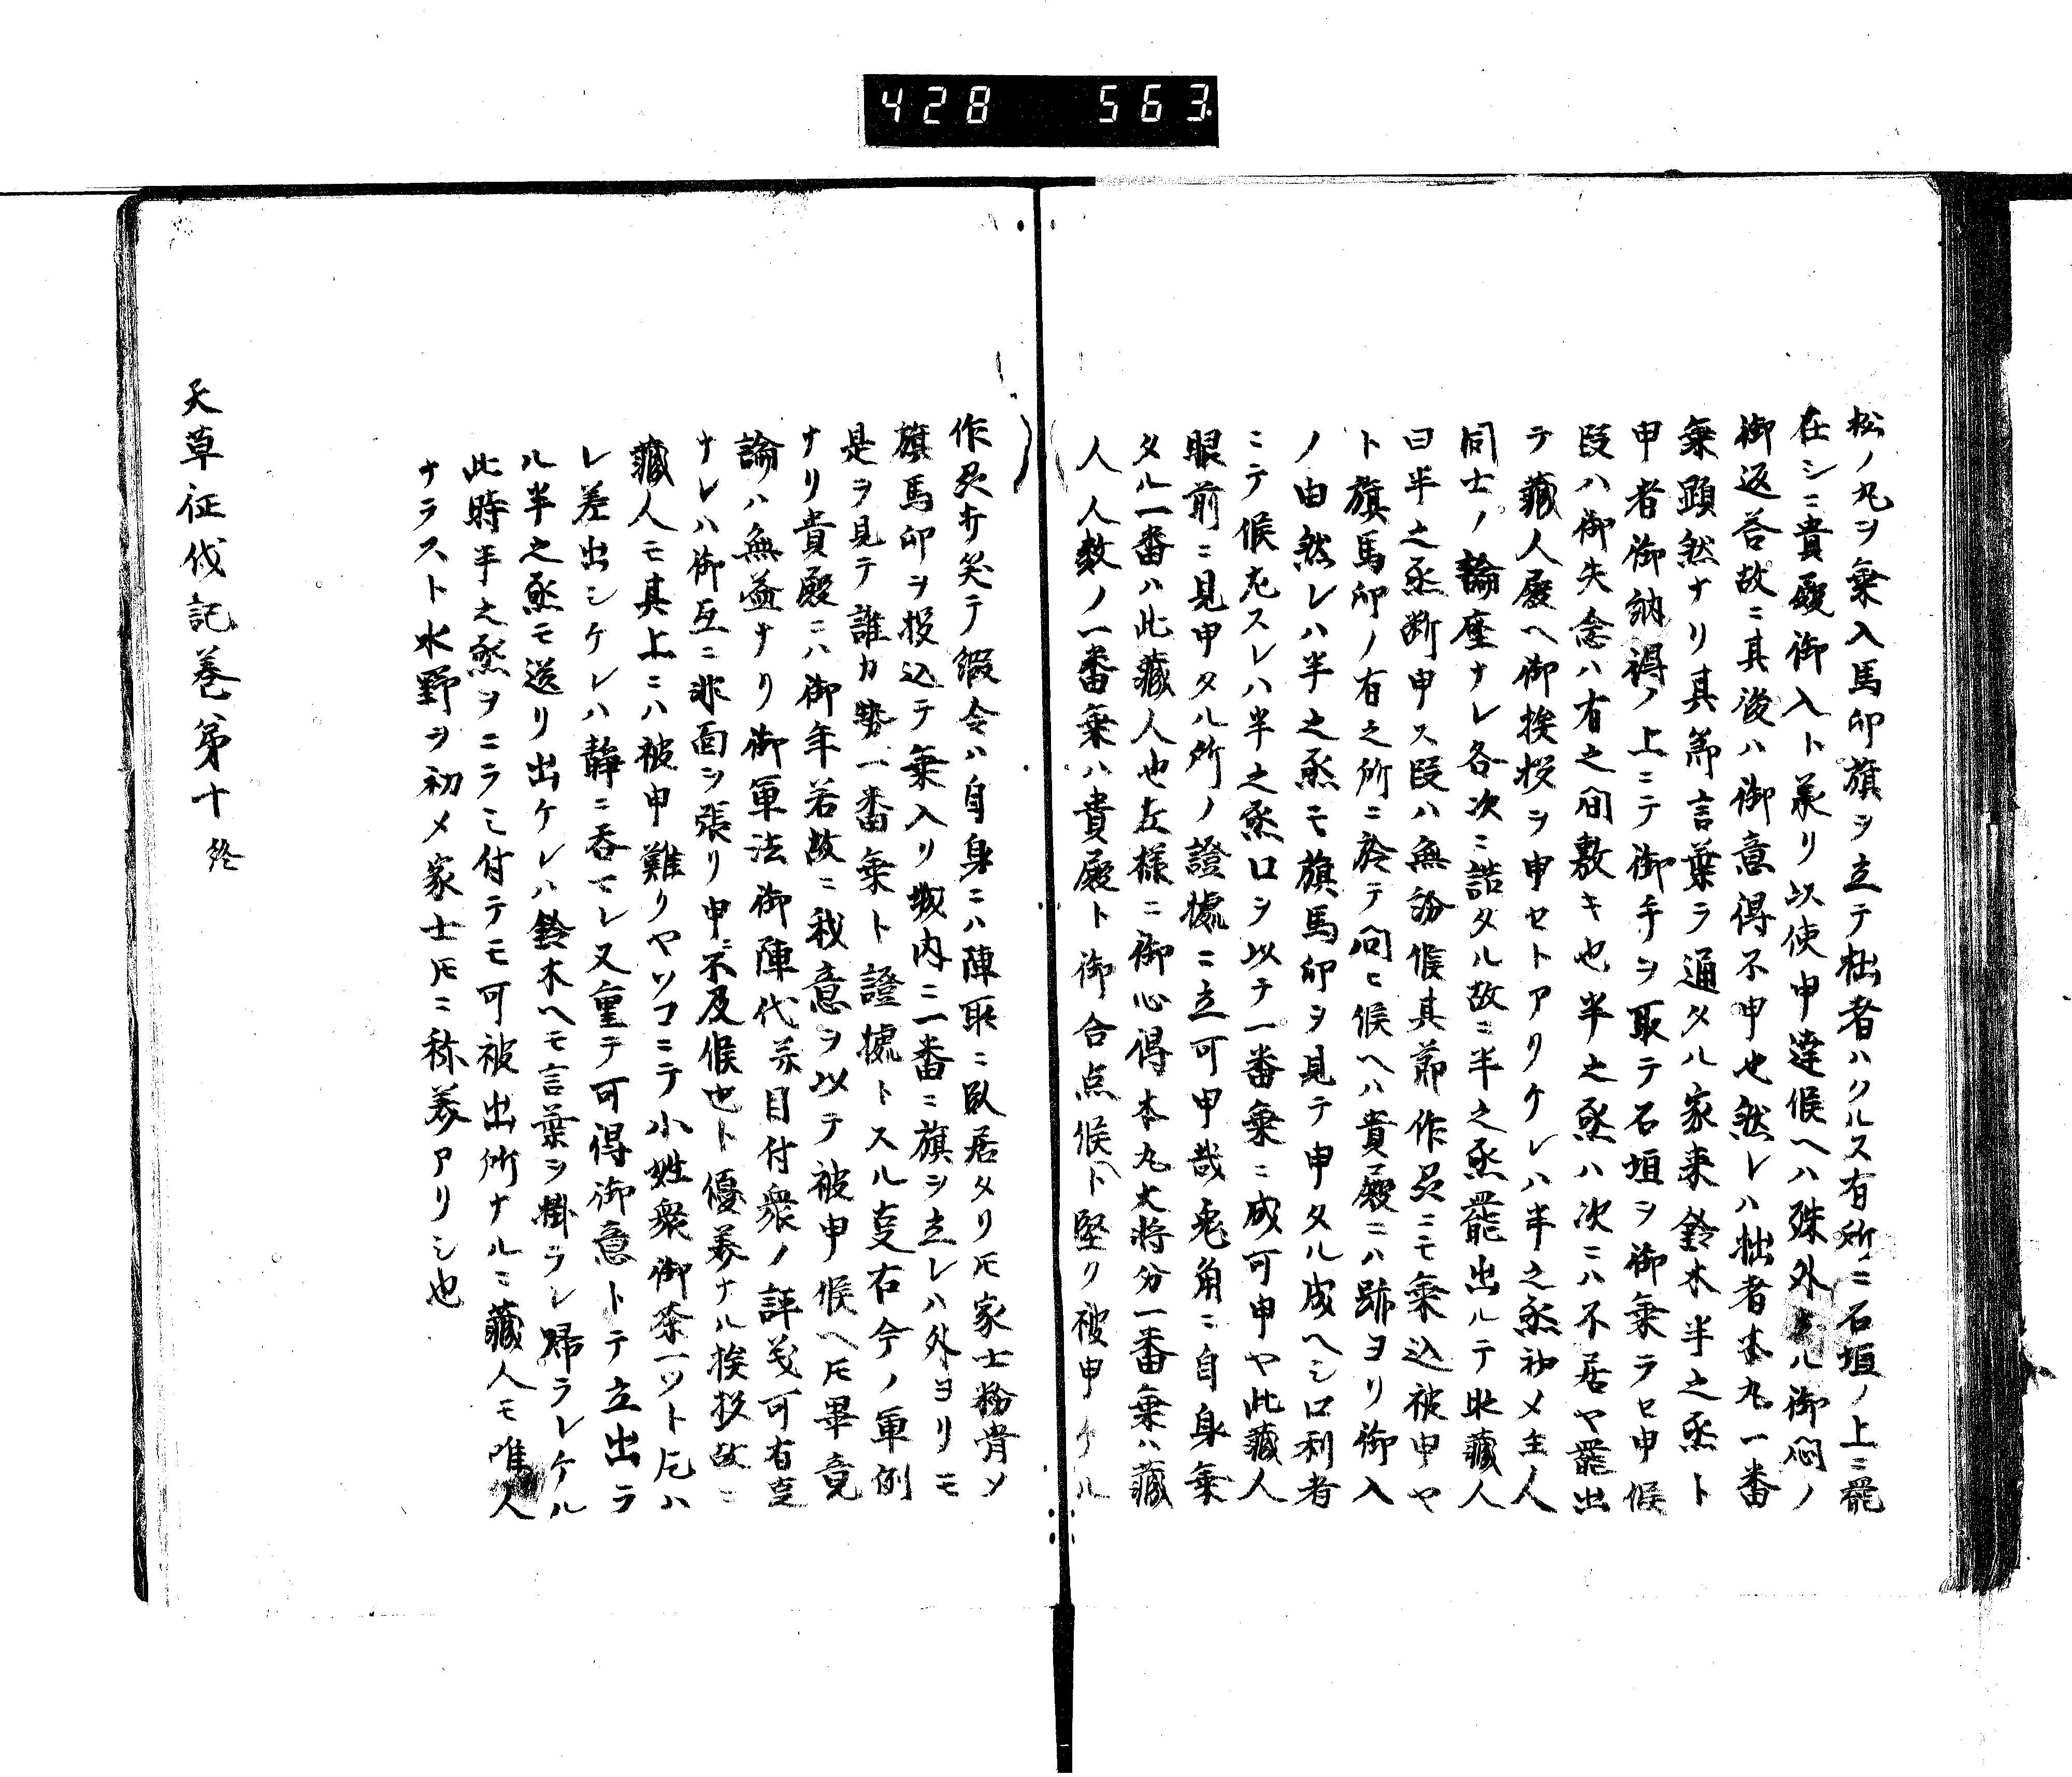 428 563
松ノ丸ヲ乗入馬印旗ヲ立テ拙者ハクルス有所ニ石垣ノ上ニ罷
在シニ貴殿御入ト承リ以使申達候ヘハ殊外ナル御悶ノ
御返答故ニ其後ハ御意得不申也然レハ拙者本丸一番
乗顕然ナリ其節言葉ヲ通タル家来鈴木半之丞ト
申者御納得ノ上ニテ御手ヲ取テ石垣ヲ御乗ラセ申候
段ハ御失念ハ有之間敷キ也半之丞ハ次ニハ不居ヤ罷出
テ蔵人殿ヘ御挨拶ヲ申セトアリケレハ半之丞初メ主人
同士ノ論座ナレ各次ニ詰タル故ニ半之丞罷出ルテ此蔵人
曰半之丞断申ス段ハ無紛候其節作兵ニモ乗込被申ヤ
ト旗馬印ノ有之所ニ於テ問ヒ候ヘハ貴殿ニハ跡ヨリ御入
ノ由然レハ半之丞モ旗馬印ヲ見テ申タル成ヘシ口利者
ニテ候左スレハ半之丞口ヲ以テ一番乗ニ成可申ヤ此蔵人
眼前ニ見申タル所ノ證據ニ立可申哉兎角ニ自身乗
タル一番ハ此蔵人也左様ニ御心得本丸大将分一番乗ハ蔵
人人数ノ一番乗ハ貴殿ト御合点候ヘト堅ク被申ケル
作兵打笑テ縦令ハ自身ニハ陣取ニ臥居タリ𪜈家士粉骨シ
旗馬印ヲ投込テ乗入リ城内ニ一番ニ旗ヲ立レハ外ヨリモ
是ヲ見テ誰カ勢一番乗ト證據トスル叓右今ノ軍例
ナリ貴殿ニハ御年若故ニ我意ヲ以テ被申候ヘ𪜈畢竟
論ハ無益ナリ御軍法御陣代并目付衆ノ評義可有叓
ナレハ御互ニ非面ヲ張リ申ニ不及候也ト優美ナル挨拶故ニ
蔵人モ其上ニハ被申難クヤソコニテ小姓衆御茶一ツト乞ハ
レ差出シケレハ静ニ呑マレ又重テ可得御意トテ立出ラ
ル半之丞モ送リ出ケレハ鈴木ヘモ言葉ヲ掛ラレ帰ラレケル
此時半之丞ヲニラミ付テモ可被出所ナルニ蔵人モ唯人
ナラスト水野ヲ初メ家士𪜈ニ称美アリシ也
天草征伐記巻第十終